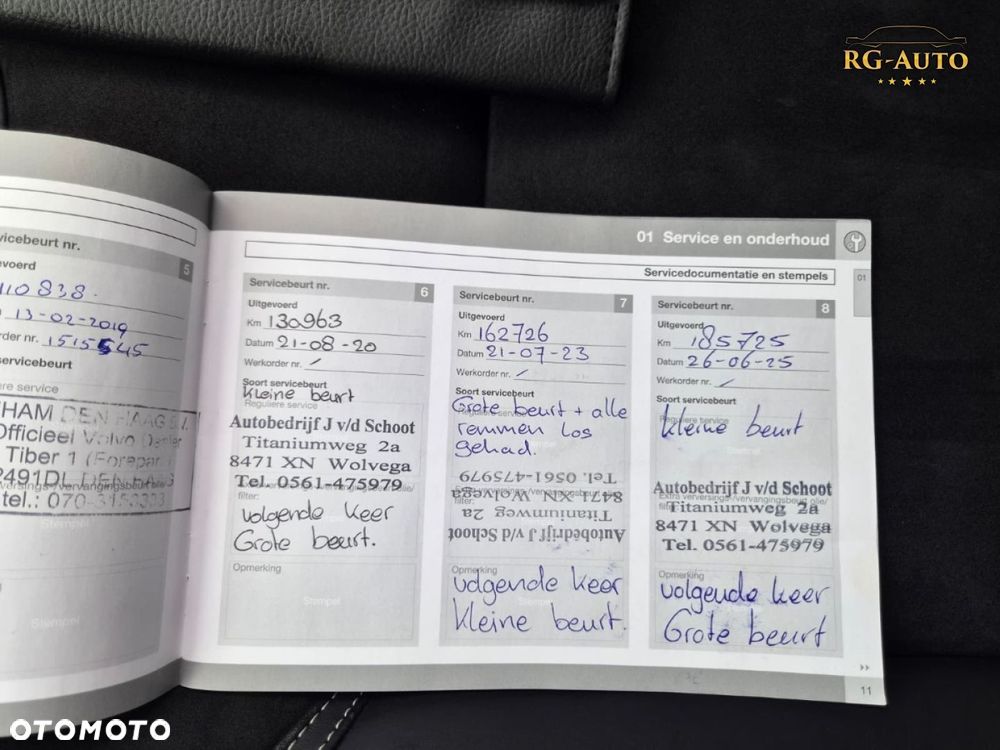 RG-AUTO
01 Service en onderhoud
01
Servicedocumentatie en stempels
vicebeurt nr.
5
evoerd
110838.
13-02-2019
rder nr. 1515545
servicebeurt
ere service
HAM DEN HAAG B.V.
Officieel Volvo Dealer
Tiber 1 (Forepark)
2491DL DEN HAAG
tel.: 070-3150303
Stempel
Stempel
Servicebeurt nr.
6
Uitgevoerd
Km 130963
Datum 21-08-20
Werkorder nr. /
Soort servicebeurt
kleine beurt
Reguliere service
Autobedrijf J v/d Schoot
Titaniumweg 2a
8471 XN Wolvega
Tel. 0561-475979
filter:
volgende keer
Grote beurt.
Opmerking
Stempel
Servicebeurt nr.
7
Uitgevoerd
Km 162726
Datum 21-07-23
Werkorder nr. /
Soort servicebeurt
Grote beurt + alle
remmen los
gehad.
Autobedrijf J v/d Schoot
Titaniumweg 2a
8471 XN Wolvega
Tel. 0561-475979
Extra verversings-/vervangingsbeurt olie/
filter:
Opmerking
volgende keer
Kleine beurt.
Servicebeurt nr.
8
Uitgevoerd
Km 185725
Datum 26-06-25
Werkorder nr. /
Soort servicebeurt
Reguliere service
kleine beurt
Autobedrijf J v/d Schoot
Extra verversings-/vervangingsbeurt olie/
Titaniumweg 2a
8471 XN Wolvega
Tel. 0561-475979
Opmerking
volgende keer
Grote beurt
11
OTOMOTO